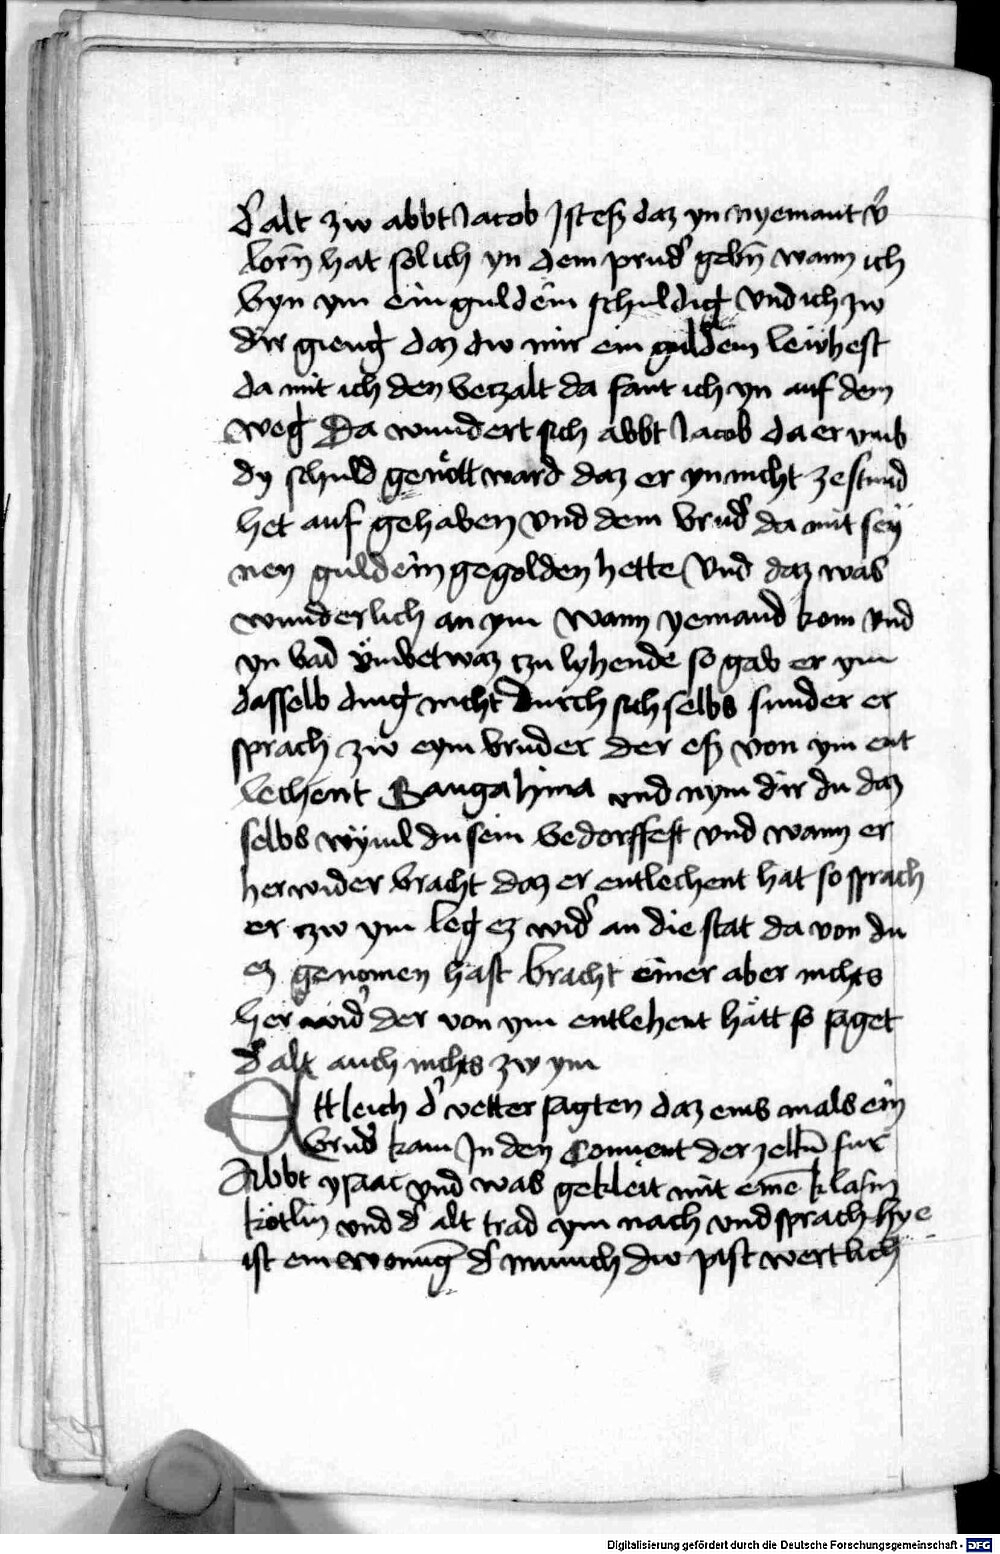 d' alt zw abbt Jacob Jst eß daz yn nyemant v'
lorñ hat so lich yn dem prud' gebñ wann ich
byn ym ein guldein schuldig vnd ich zw
dir gieng daz dw mir ein guldein leiyhest
da mit ich den betzalt da fant ich yn auf dem
weg Da wundert sich abbt Jacob da er vmb
dy schuld genött ward daz er yn nicht ze stund
het auf gehaben vnd dem brud' da mit sey
nen guldein gegolden hette Vnd daz was
wunderlich an ym Wann yemand kom vnd
yn bad vmb etwaz tzu lyhende so gab er ym
dasselb ding nicht durch sich selbs sunder er
sprach zw eym bruder der eß von ym ent
lechent Gang hina vnd nym dir du daz
selbs wyuil du sein bedorffest vnd wann er
her wider bracht daz er entlechent hat so sprach
er tzw ym leg ez wid' an die stat da von du
ez genomen hast bracht einer aber nichts
her wid' der von ym entlehent hätt so saget
d' alt auch nichts zw ym
Ettleich d' vetter sagten daz eins mals ein
brud' kam In den Conuent der zellñ fur
Abbt ysaac vnd was gekleit mit eine klain
kötlin vnd d' alt trad ym nach vnd sprach hye
ist ein wonung d' münich dw pist wertlich
Digitalisierung gefördert durch die Deutsche Forschungsgemeinschaft - DFG